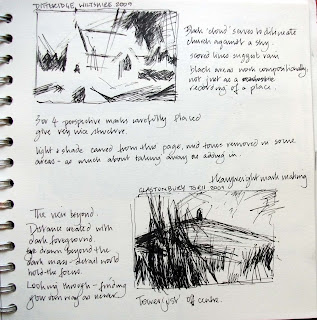 DITTERIDGE, WILTSHIRE 2009
Black 'cloud' serves to delineate
church against a sky.
scored lines suggest rain
black areas work compositionally
not just as a
recording of a place.
3 or 4 perspective marks carefully placed
give very nice structure.
light & shade carved from this page, mid tones removed in some
areas - as much about taking away as adding in.
mark making
GLASTONBURY TOR II 2009
The view beyond.
Distance created with
dark foreground.
drawn beyond the
dark mass - detail would
hold the focus.
Looking through - finding
your own way as viewer
Tower just off centre.